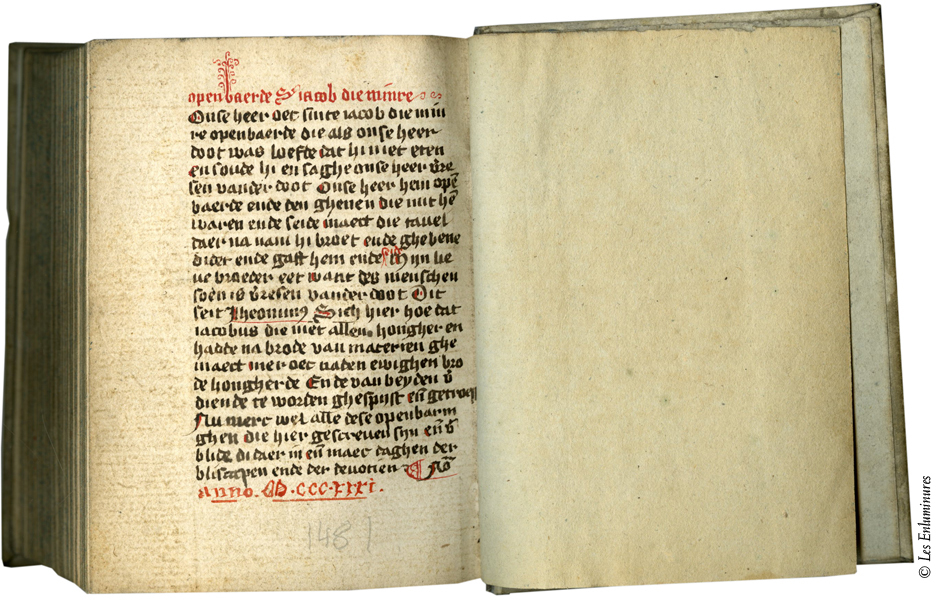 openbaerde S iacob die minre
Onse heer oec sinte iacob die min
re openbaerde die als onse heer
doot was loefde dat hi niet eten
en soude hi en saghe onse heer v̄re
sen vander doot Onse heer hem opē
baerde ende den ghenen die mit hē
waren ende seide maect die tauel
daer na nam hi broet ende ghebene
didet ende gaff hem ende Mijn lie
ue broeder eet want des menschen
soen is v̄resen vander doot Dit
seit Iheronimus Sich hier hoe dat
iacobus die niet allen hongher en
hadde na brode van materien ghe
maect mer oec naden ewighen bro
de hongherde Ende van beyden v̄
diende te worden ghespijst eñ getroest
Nu merc wel alle dese openbarin
ghen die hier gescreuen sijn eñ v̄
blide di daer in eñ maec daghen der
bliscapen ende der deuocien
Anno. M.CCCC.XXXI.
148
© Les Enluminures